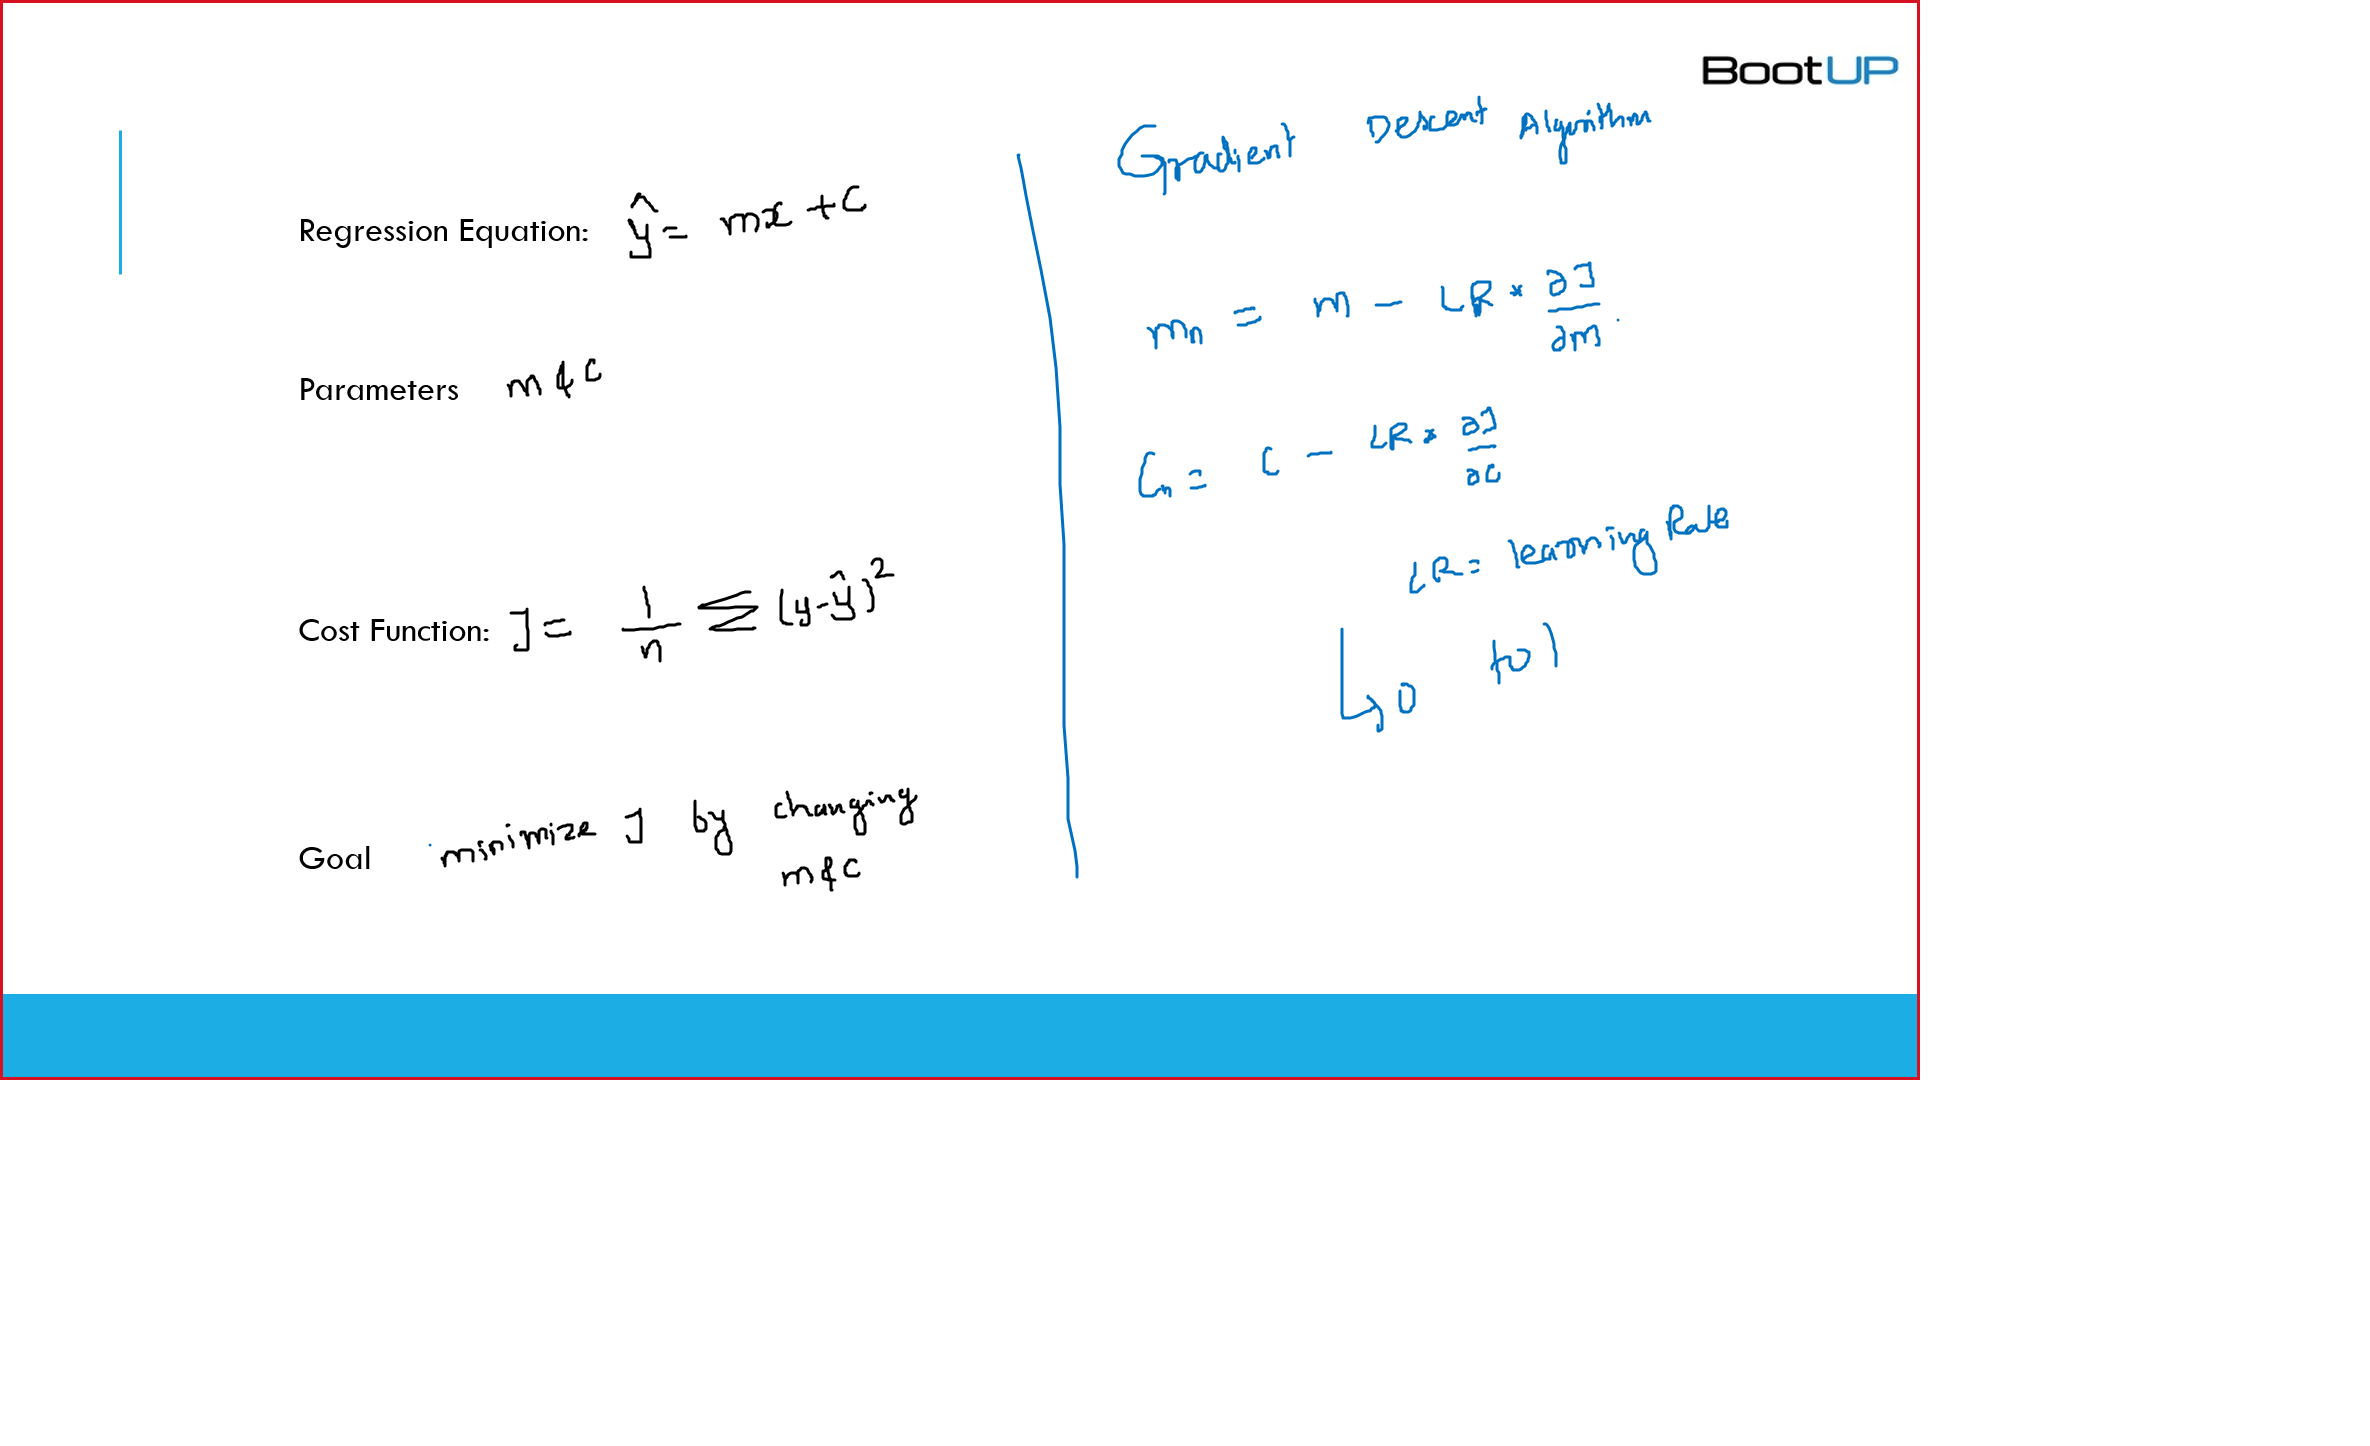 BootUP
Regression Equation: ŷ = mx + c
Parameters m & c
Cost Function: J = 1/n Σ (y - ŷ)²
Goal minimize J by changing
m & c
Gradient Descent Algorithm
mₙ = m - LR * ∂J/∂m
Cₙ = C - LR * ∂J/∂C
LR = learning Rate
↳ 0 to 1